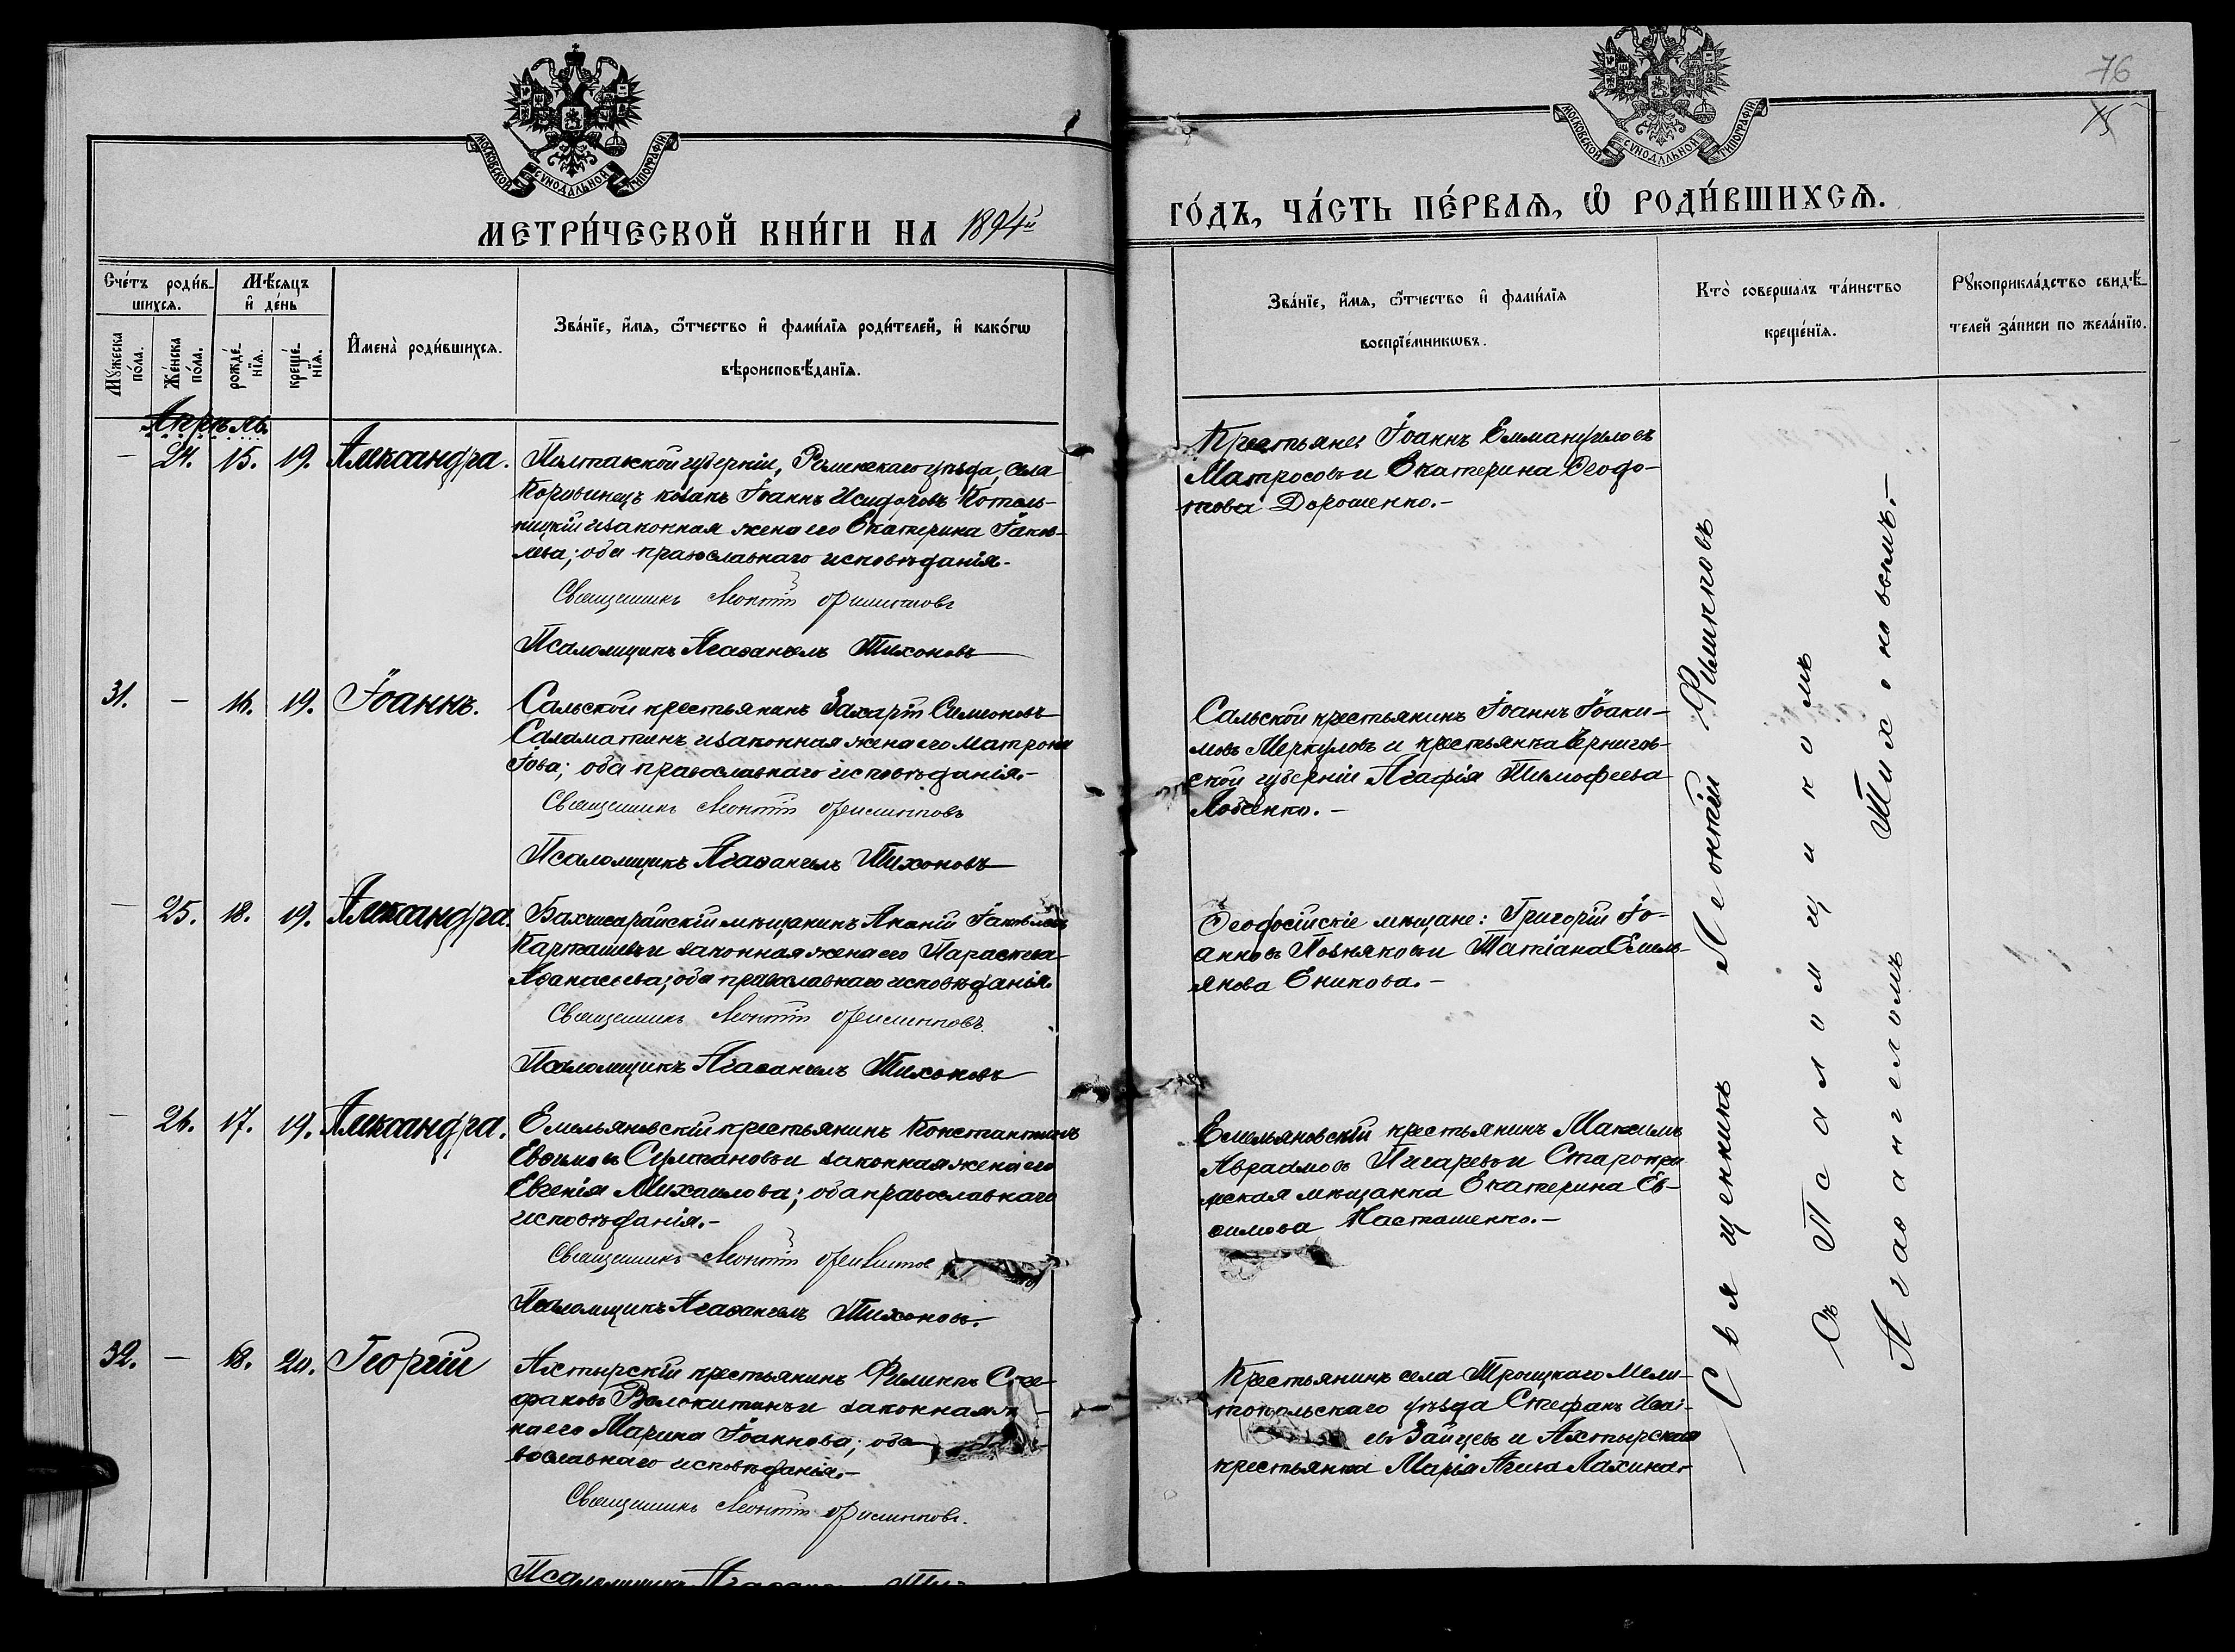 76
75
МОСКОВСКОЙ СУНОДАЛЬНОЙ ТИПОГРАФІИ
МОСКОВСКОЙ СУНОДАЛЬНОЙ ТИПОГРАФІИ
МЕТРИ́ЧЕСКОЙ КНИ́ГИ НА 1894й
ГО́ДЪ, ЧА́СТЬ ПЕ́РВАѦ, Ѡ҆ РОДИ́ВШИХСѦ.
Сче́тъ роди́в-
шихся.
Мѣ́сяцъ
и҆ де́нь
Мꙋ́жеска
по́ла.
Же́нска
по́ла.
рожде́-
нїѧ.
креще́-
нїѧ.
И҆мена̀ роди́вшихсѧ.
Зва́нїе, и҆́мѧ, ѻ҆́тчество и҆ фами́лїѧ роди́телей, и҆ како́гѡ
вѣроисповѣ́данїѧ.
Зва́нїе, и҆́мѧ, ѻ҆́тчество и҆ фами́лїѧ
воспрїе́мникѡвъ.
Кто̀ соверша́лъ та́инство
креще́нїѧ.
Рꙋкоприкла́дство свидѣ́-
телей за́писи по жела́нїю.
Апрѣль.
— 24. 15. 19. Александра.
Полтавской губерніи, Роменскаго уѣзда, села
Коровинецъ козакъ Іоаннъ Исидоровъ Котель-
ницкій и законная жена его Екатерина Іаков-
лева; оба православнаго исповѣданія.-
Священникъ Леонтій Филипповъ
Псаломщикъ Агаѳангелъ Тихоновъ
Крестьяне: Іоаннъ Еммануиловъ
Матросовъ и Екатерина Ѳеодо-
това Дорошенко.-
31. — 16. 19. Іоаннъ.
Сальской крестьянинъ Захарій Симеоновъ
Саламатинъ и законная жена его Матрона
Іова; оба православнаго исповѣданія.-
Священникъ Леонтій Филипповъ
Псаломщикъ Агаѳангелъ Тихоновъ
Сальской крестьянинъ Іоаннъ Іоаки-
мовъ Меркуловъ и крестьянка Чернигов-
ской губерніи Агафія Тимофеева
Лобенко.-
— 25. 18. 19. Александра.
Бахчисарайскій мѣщанинъ Ананій Іаковлевъ
Карташевъ и законная жена его Параскева
Аѳанасьева; оба православнаго исповѣданія.
Священникъ Леонтій Филипповъ.
Псаломщикъ Агаѳангелъ Тихоновъ
Ѳеодосійскіе мѣщане: Григорій Іо-
анновъ Позняковъ и Татіана Емель-
янова Еникова.-
— 26. 17. 19. Александра.
Емельяновскій крестьянинъ Константинъ
Евѳимовъ Султановъ и законная жена его
Евгенія Михаилова; оба православнаго
исповѣданія.-
Священникъ Леонтій Филиппов
Псаломщикъ Агаѳангелъ Тихоновъ.
Емельяновскій крестьянинъ Максимъ
Авраамовъ Писаревъ и Старокры
мская мѣщанка Екатерина Ев-
ѳимова Касташенко.-
32. — 18. 20. Георгій
Ахтырскій крестьянинъ Филиппъ Сте-
фановъ Волокитинъ и законная
на его Марина Іоаннова; оба
вославнаго исповѣданія.-
Священникъ Леонтій Филипповъ.
Псаломщикъ
Крестьянинъ села Троицкаго Мели-
топольскаго уѣзда Стефанъ
евъ Зайцевъ и Ахтырская
крестьянка Марія Лахина.-
Священникъ Леонтій Филипповъ
Съ Псаломщикомъ
Агаѳангеломъ Тихоновымъ.-